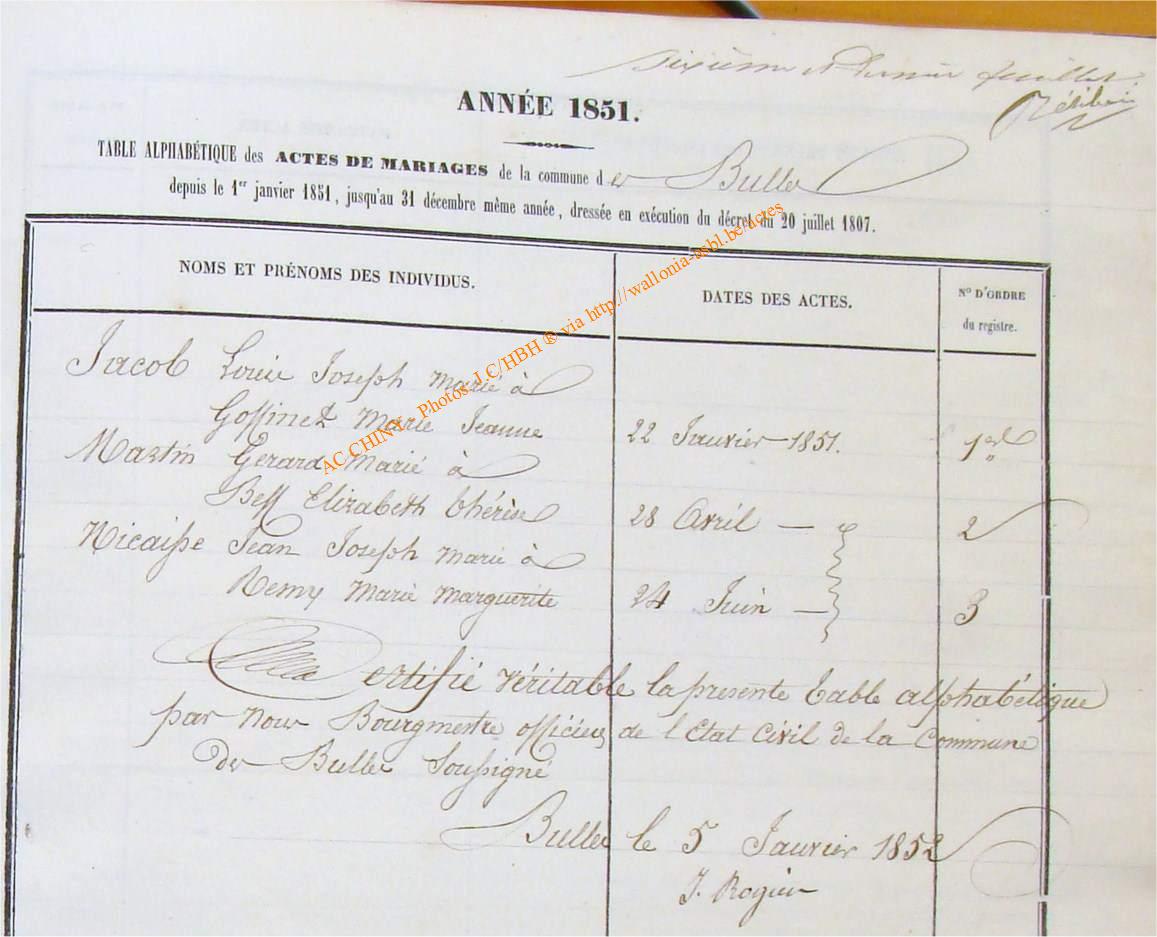 sixième et dernier feuillet.
ANNÉE 1851.
TABLE ALPHABÉTIQUE des ACTES DE MARIAGES de la commune d e Bulles
depuis le 1er janvier 1851, jusqu'au 31 décembre même année, dressée en exécution du décret du 20 juillet 1807.
NOMS ET PRÉNOMS DES INDIVIDUS. DATES DES ACTES. N° D'ORDRE
du registre.
Jacob Louis Joseph marié à
Goffinet Marie Jeanne 22 Janvier 1851. 1er
Martin Gerard Marié à
Bess Elizabeth thérèse 28 Avril — 2
Nicaisse Jean Joseph marié à
Remy Marie marguerite 24 Juin — 3
Certifié Véritable la presente table alphabétique
par Nous Bourgmestre officier de l'Etat Civil de la Commune
de Bulles Soussigné
Bulles le 5 Janvier 1852
J. Rogier
AC CHINY - Photos J.C/HBH ® via http://wallonia-asbl.be/actes